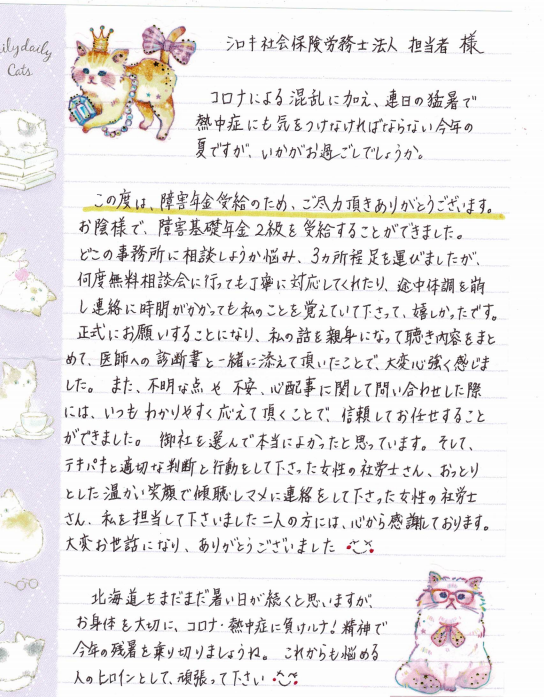 ilydaily
Cats
シロキ社会保険労務士法人 担当者 様
コロナによる混乱に加え、連日の猛暑で
熱中症にも気をつけなければならない今年の
夏ですが、いかがお過ごしでしょうか。
この度は、障害年金受給のため、ご尽力頂きありがとうございます。
お陰様で、障害基礎年金2級を受給することができました。
どこの事務所に相談しようか悩み、3ヵ所程足を運びましたが、
何度無料相談会に行っても丁寧に対応してくれたり、途中体調を崩
し連絡に時間がかかっても私のことを覚えていて下さって、嬉しかったです。
正式にお願いすることになり、私の話を親身になって聴き内容をまと
めて、医師への診断書と一緒に添えて頂いたことで、大変心強く感じま
した。また、不明な点や不安、心配事に関して問い合わせした際
には、いつもわかりやすく応えて頂くことで、信頼してお任せすること
ができました。御社を選んで本当によかったと思っています。そして、
テキパキと適切な判断と行動をして下さった女性の社労士さん、おっとり
とした温かい笑顔で傾聴しマメに連絡をして下さった女性の社労士
さん、私を担当して下さいました二人の方には、心から感謝しております。
大変お世話になり、ありがとうございました
北海道もまだまだ暑い日が続くと思いますが、
お身体を大切に、コロナ・熱中症に負けルナ!精神で
今年の残暑を乗り切りましょうね。これからも悩める
人のヒロインとして、頑張って下さい